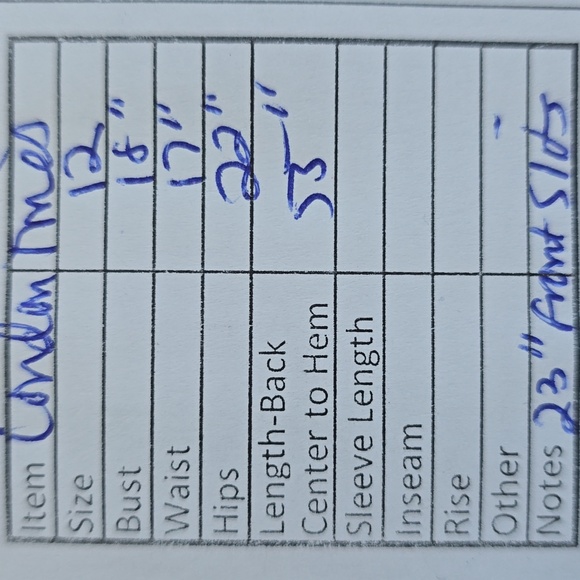 Item London Times
Size 12
Bust 18"
Waist 17"
Hips 22"
Length-Back
Center to Hem 53"
Sleeve Length
Inseam
Rise
Other -
Notes 23" front slits